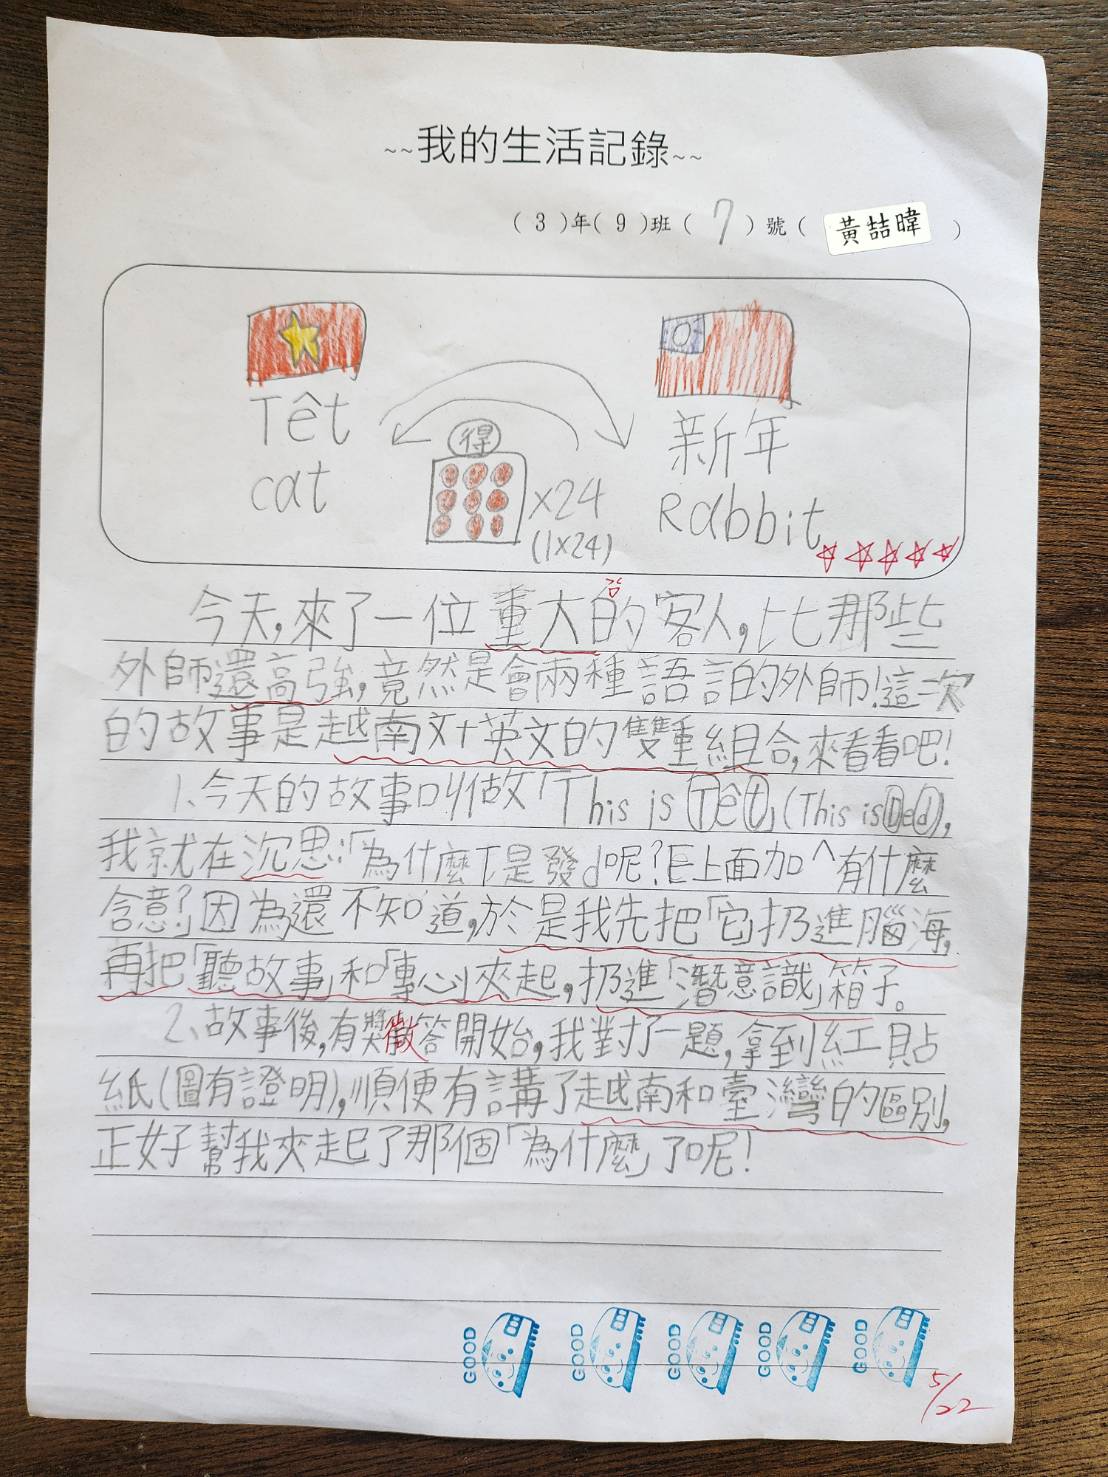 ~~我的生活記錄~~
( 3 )年( 9 )班( 7 )號( 黃喆暐 )
Têt
cat
得
×24
(1×24)
新年
Rabbit
今天,來了一位重大的客人,比那些
外師還高強,竟然是會兩種語言的外師!這次
的故事是越南文+英文的雙重組合,來看看吧!
1.今天的故事叫做「This is Têt」(This is Ded),
我就在沉思:「為什麼T是發d呢?E上面加^有什麼
含意?」因為還不知道,於是我先把「它」扔進腦海,
再把「聽故事」和「專心」夾起,扔進「潛意識」箱子。
2.故事後,有獎徵答開始,我對了一題,拿到紅貼
紙(圖有證明),順便有講了越南和臺灣的區別,
正好幫我夾起了那個「為什麼」了呢!
GOOD GOOD GOOD GOOD GOOD
5/22